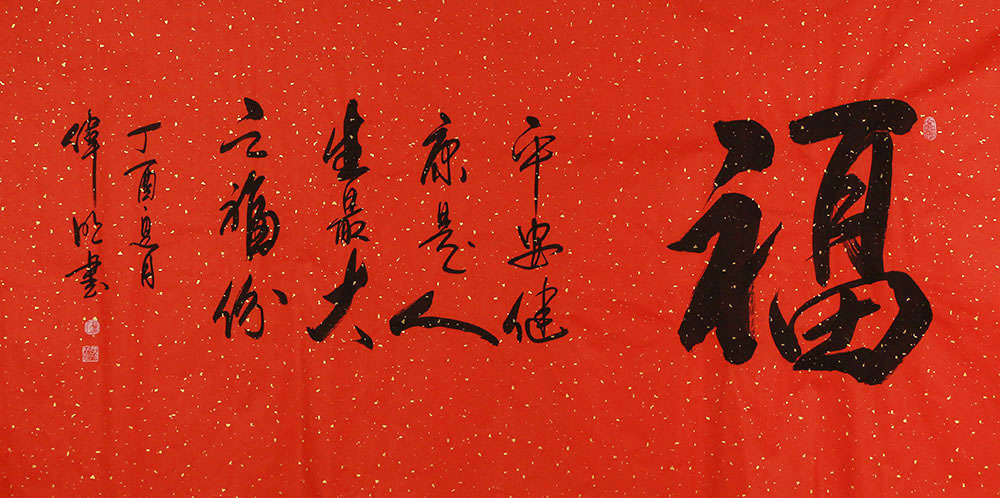 福
平安健
康是人
生最大
之福份
丁酉夏月
偉明書